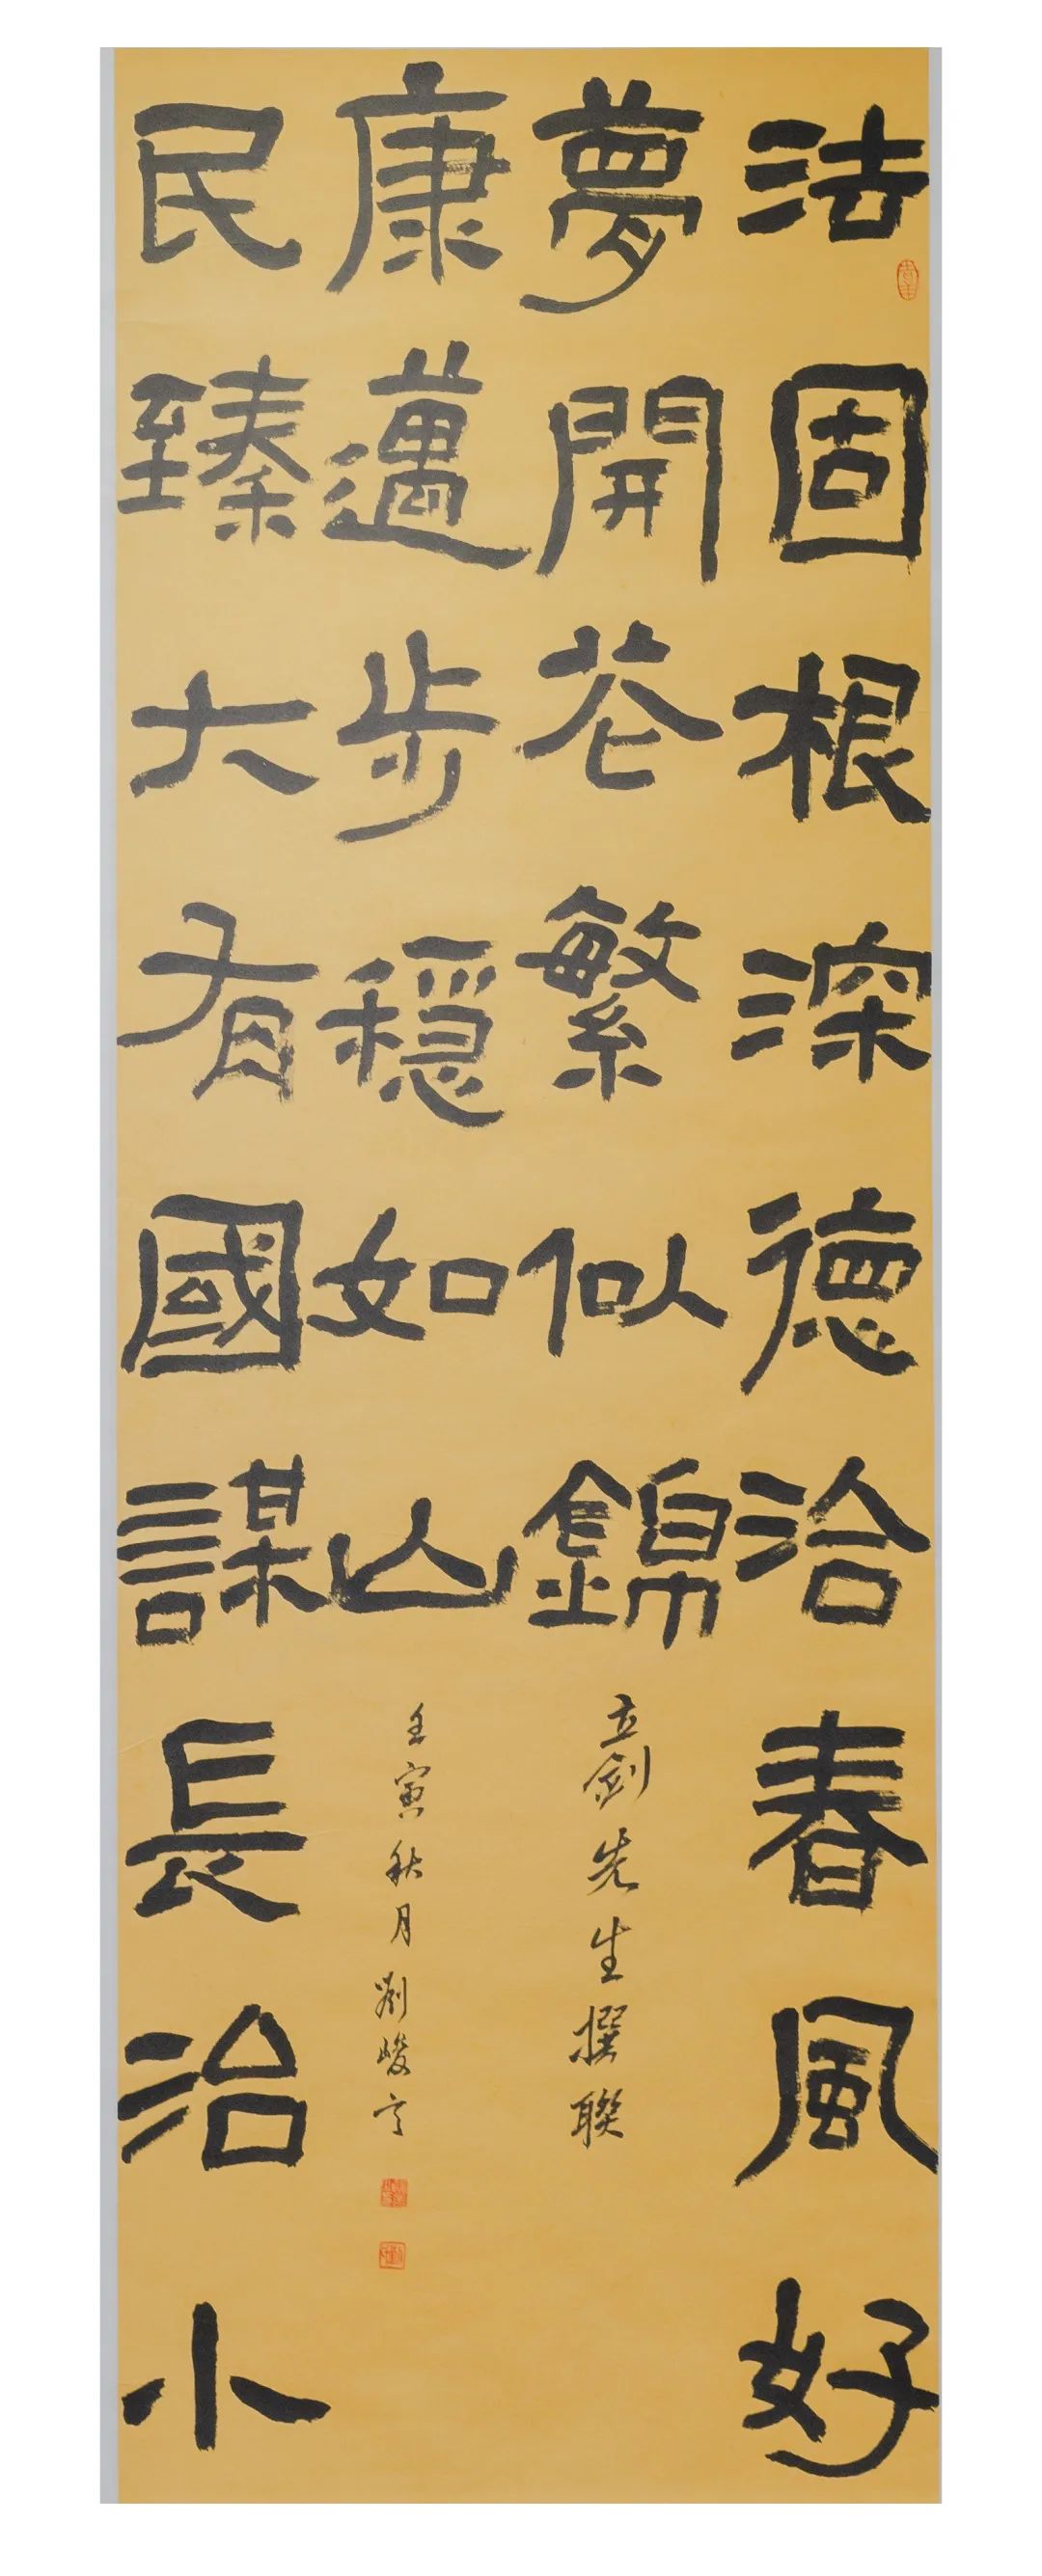 法固根深德洽春風好
夢開花繁似錦
立劍先生撰聯
民臻大有國謀長治小
康邁步穩如山
壬寅秋月劉峻